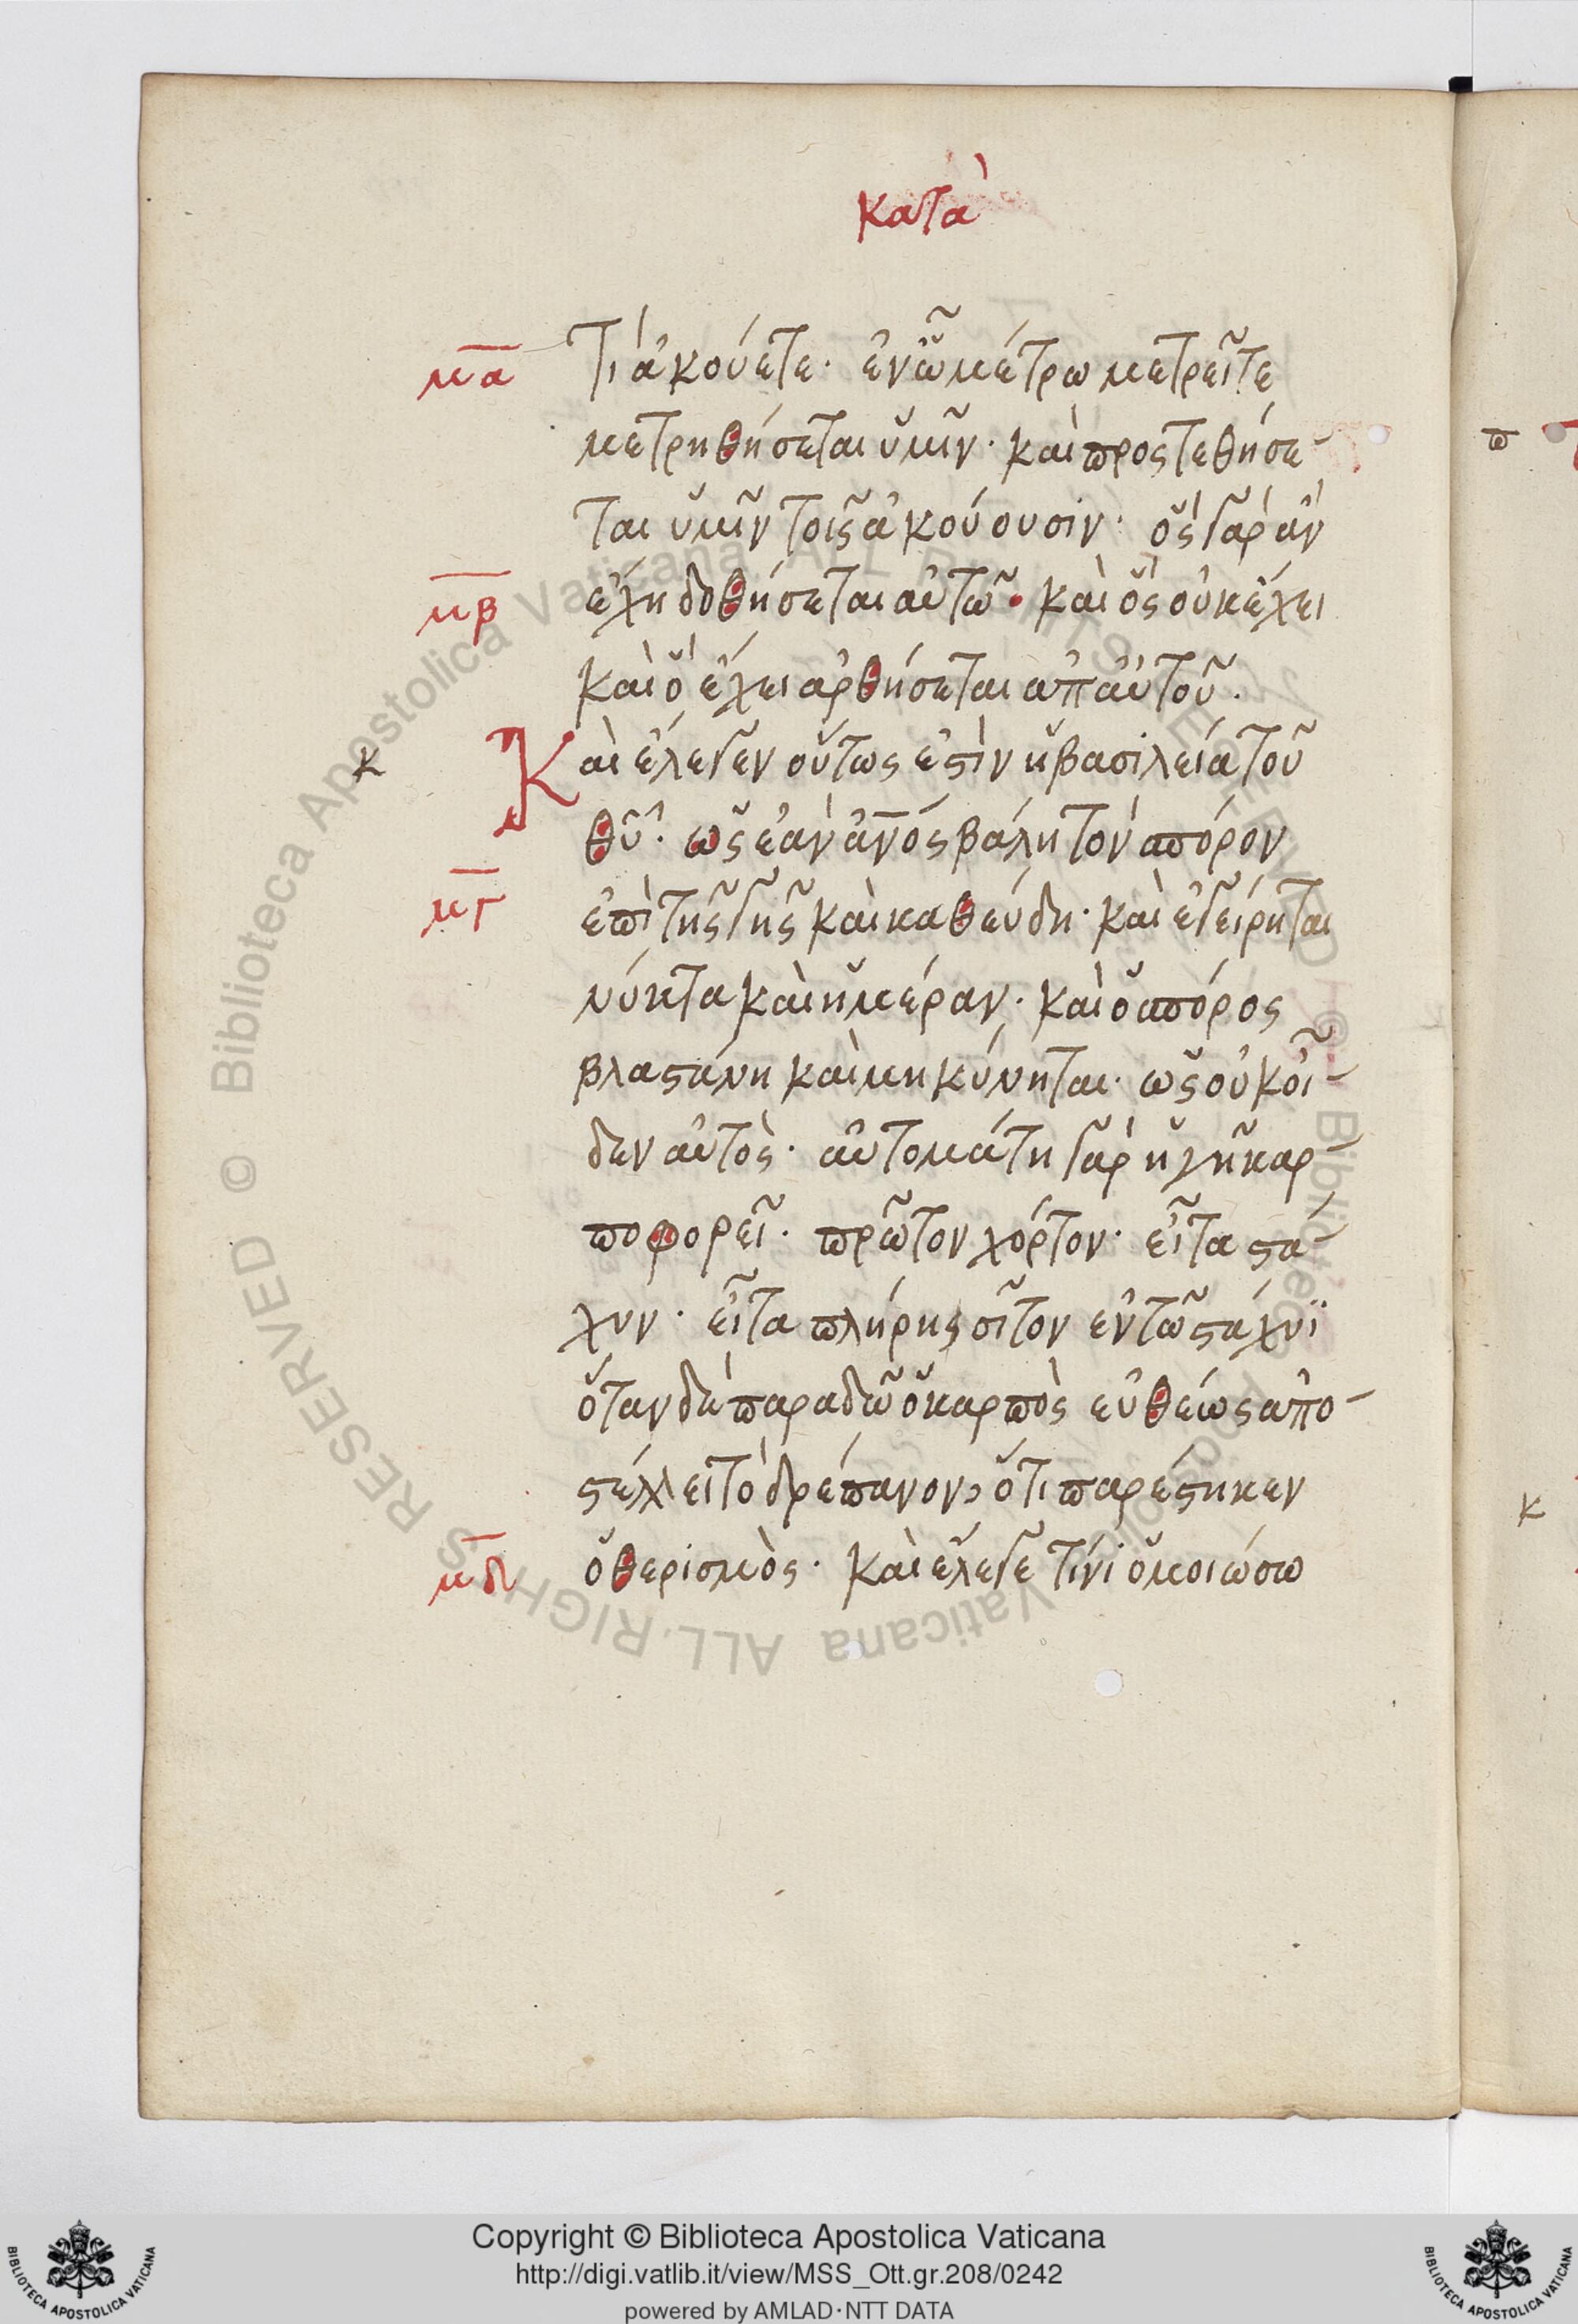 κατὰ
μα τί ἀκούετε· ἐν ὧ μέτρω μετρεῖτε
μετρηθήσεται ὑμῖν· καὶ προςτεθήσε-
ται ὑμῖν τοῖς ἀκούουσιν· ὃς γὰρ ἂν
μβ ἔχη δοθήσεται αὐτῶ· καὶ ὃς οὐκ ἔχει
καὶ ὃ ἔχει ἀρθήσεται ἀπ αὐτοῦ.
κ Καὶ ἔλεγεν οὕτως ἐστὶν ἡ βασιλεία τοῦ
θυ· ὡς ἐὰν ανος βάλη τὸν σπόρον
μγ ἐπὶ τῆς γῆς καὶ καθεύδη· καὶ ἐγείρηται
νύκτα καὶ ἡμέραν· καὶ ὁ σπόρος
βλαστάνη καὶ μηκύνηται· ὡς οὐκ οἶ-
δεν αὐτὸς· αὐτομάτη γὰρ ἡ γῆ καρ-
ποφορεῖ· πρῶτον χόρτον· εἶτα στά-
χυν· εἶτα πλήρης σῖτον ἐν τῶ στάχυϊ
ὅταν δὲ παραδῶ ὁ καρπὸς εὐθέως ἀπο-
στέλλει τὸ δρέπανον, ὅτι παρέστηκεν
μδ ὁ θερισμὸς· καὶ ἔλεγε τίνι ὁμοιώσω
π
κ
Copyright © Biblioteca Apostolica Vaticana
http://digi.vatlib.it/view/MSS_Ott.gr.208/0242
powered by AMLAD·NTT DATA
BIBLIOTECA APOSTOLICA VATICANA
BIBLIOTECA APOSTOLICA VATICANA
© Biblioteca Apostolica Vaticana ALL RIGHTS RESERVED
© Biblioteca Apostolica Vaticana ALL RIGHTS RESERVED